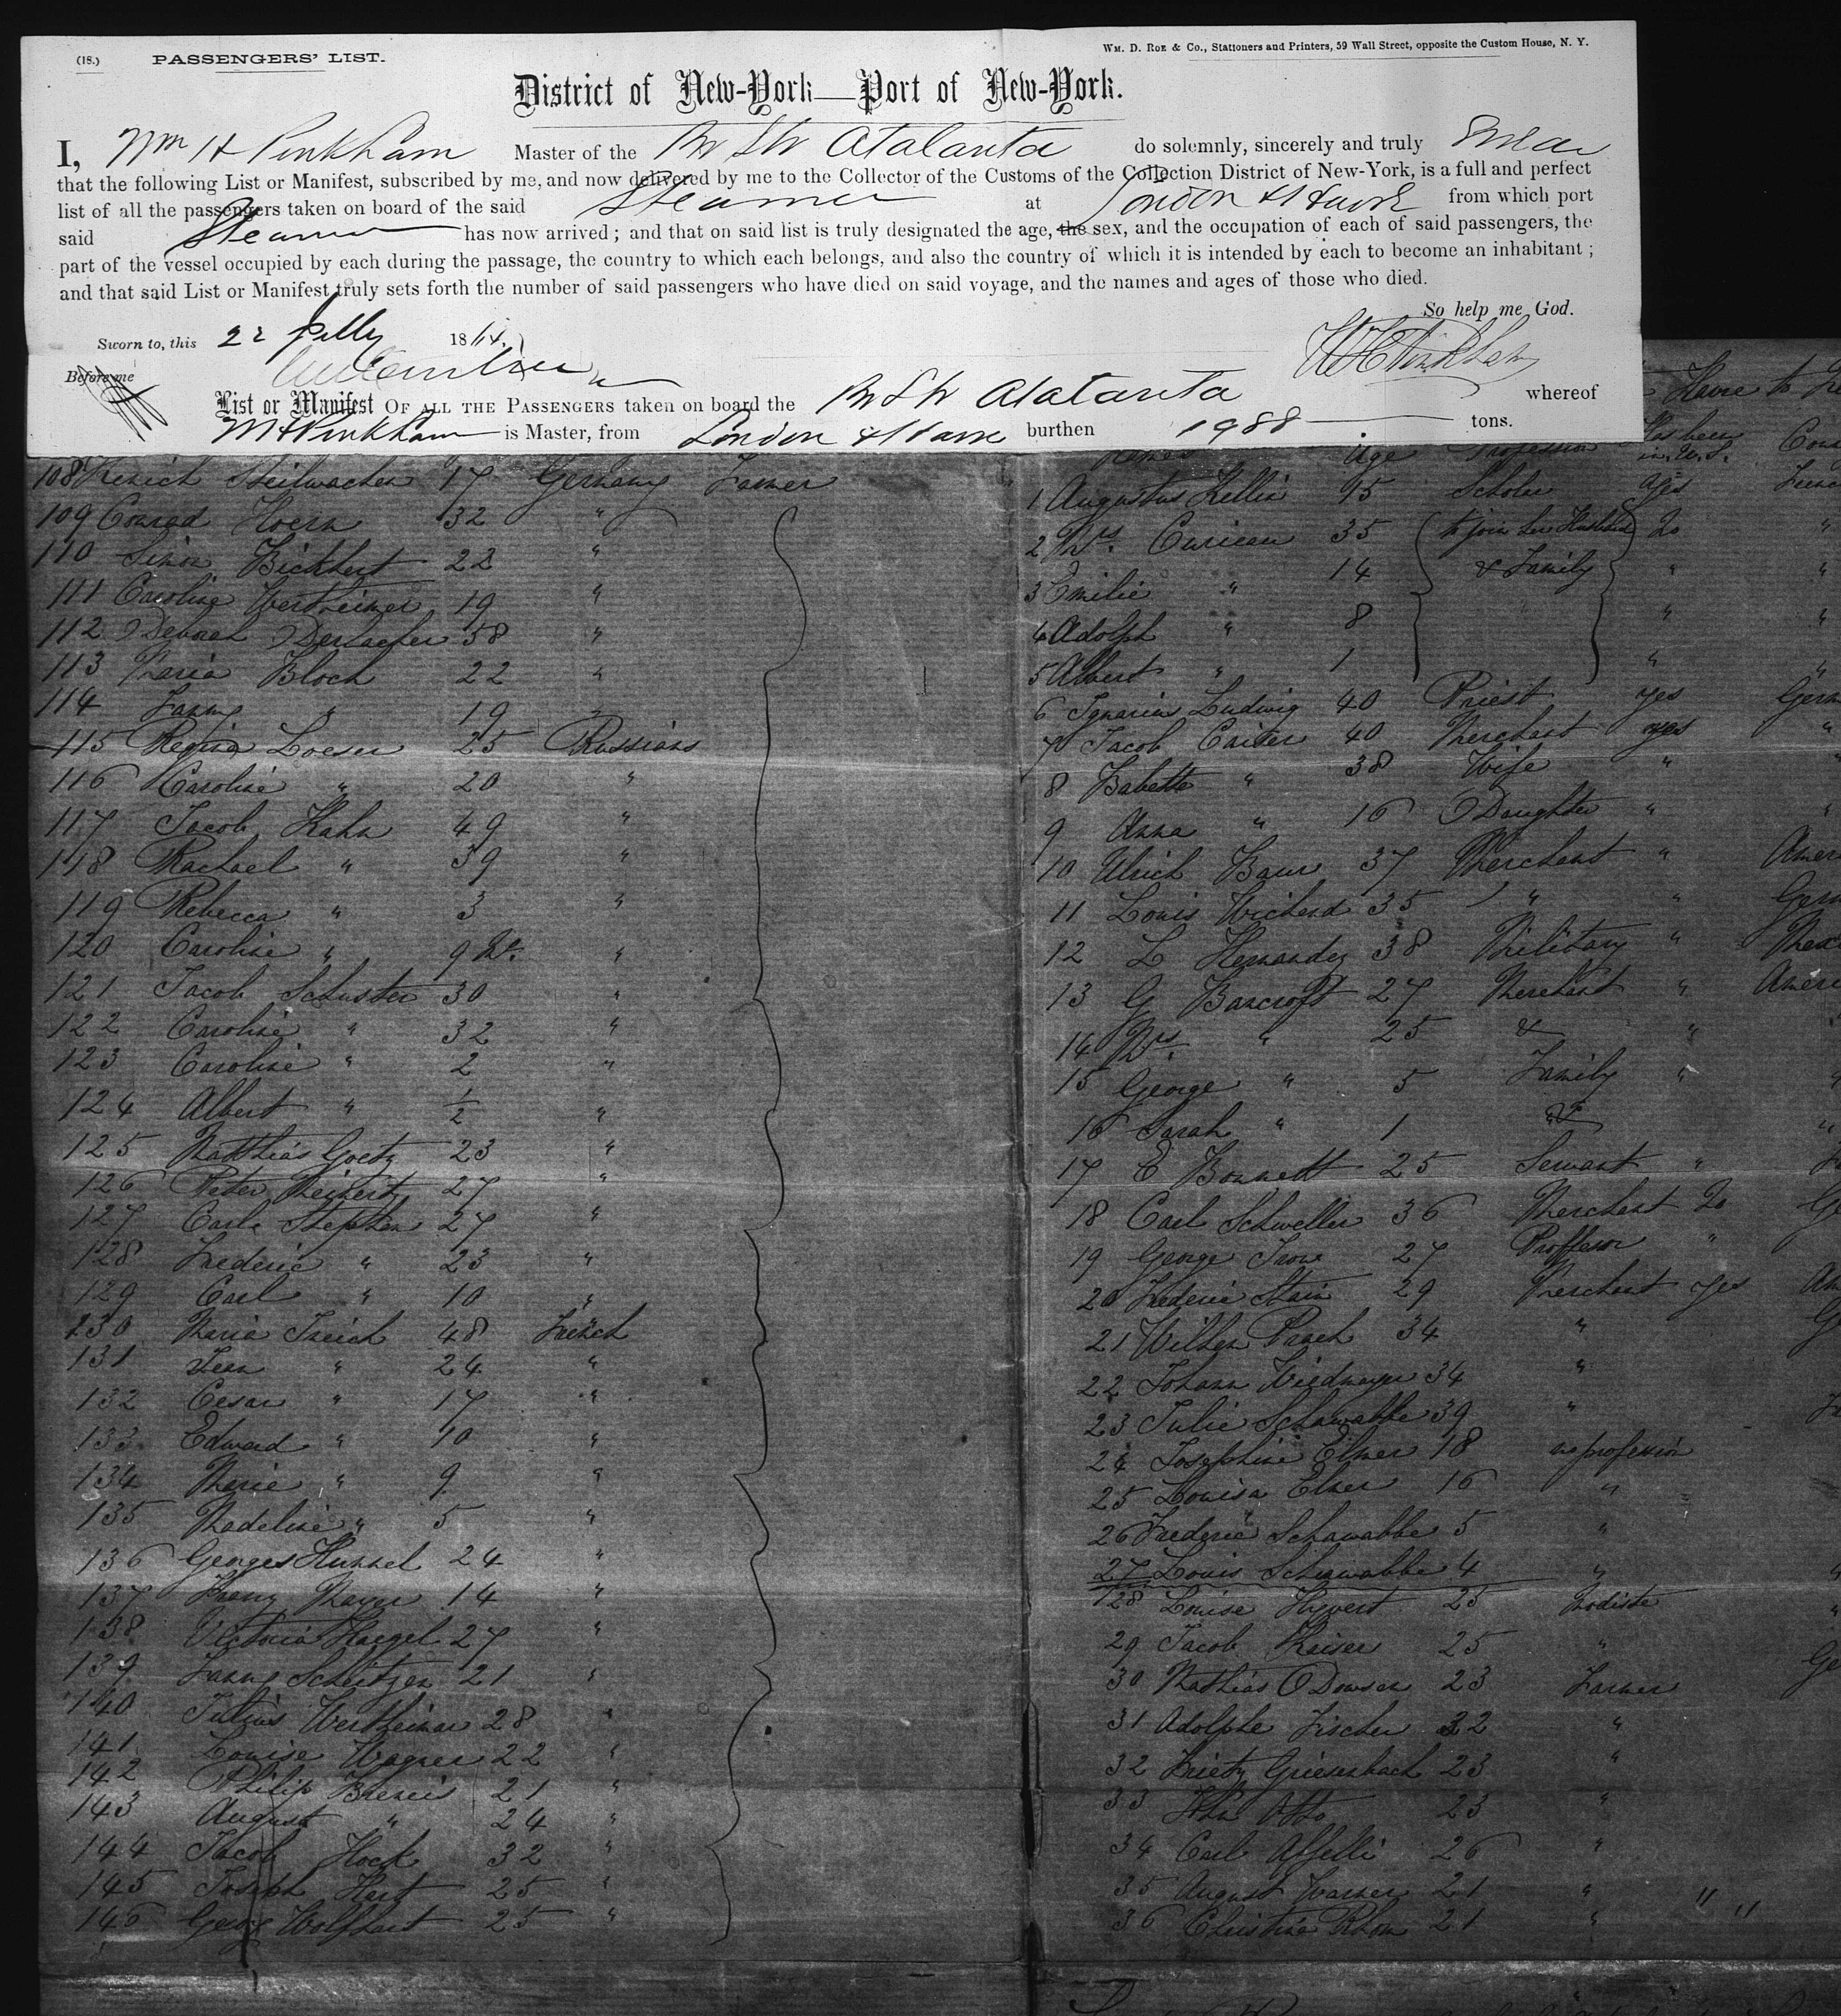 (18.) PASSENGERS' LIST. WM. D. ROE & CO., Stationers and Printers, 59 Wall Street, opposite the Custom House, N. Y.
District of New-York—Port of New-York.
I, Wm H Pinkham Master of the Atalanta do solemnly, sincerely and truly Swear
that the following List or Manifest, subscribed by me, and now delivered by me to the Collector of the Customs of the Collection District of New-York, is a full and perfect
list of all the passengers taken on board of the said Steamer at London & Havre from which port
said Steamer has now arrived; and that on said list is truly designated the age, the sex, and the occupation of each of said passengers, the
part of the vessel occupied by each during the passage, the country to which each belongs, and also the country of which it is intended by each to become an inhabitant;
and that said List or Manifest truly sets forth the number of said passengers who have died on said voyage, and the names and ages of those who died.
So help me God.
Sworn to, this 22 18 WHPinkham
Before me
List or Manifest OF ALL THE PASSENGERS taken on board the Atalanta whereof
WHPinkham is Master, from London & Havre burthen 1988 tons.
108 17 Germany Farmer
109 Conrad Hoern 32 "
110 Simon Bickhert 22 "
111 Caroline Wertheimer 19 "
112 Deborah 58 "
113 Maria Bloch 22 "
114 Fanny " 19 "
115 Regina Loeser 25 Russians
116 Caroline " 20 "
117 Jacob Kahn 49 "
118 Rachael " 39 "
119 Rebecca " 3 "
120 Caroline " 9 Mo. "
121 Jacob Schuster 30 "
122 Caroline " 32 "
123 Caroline " 2 "
124 Albert " 1/2 "
125 Matthias Goetz 23 "
126 Peter Reinertz 27 "
127 Carl Stephen 27 "
128 Frederic " 23 "
129 Carl " 10 "
130 Maria Treich 48 French
131 Jean " 24 "
132 Cesar " 17 "
133 Edward " 10 "
134 Marie " 9 "
135 Madeline " 5 "
136 Georges Hunzel 24 "
137 Franz Mayer 14 "
138 Victoria Haegel 27 "
139 Fanny Scheitzen 21 "
140 Julius Wertheimer 28 "
141 Louise Wagner 22 "
142 Philip 21 "
143 August " 24 "
144 Jacob Hock 32 "
145 Joseph Hert 25 "
146 George Wolffhert 25 "
Havre to
Names Age Profession Has been in U.S.
1 Augustus Kellie 95 Scholar Yes French
2 Mrs. Curicau 35 to join her Husband No "
3 Emilie " 14 & Family " "
4 Adolph " 8 " "
5 Albert " 1 " "
6 Ignarius Ludwig 40 Priest yes Germ
7 Jacob Caiser 40 Merchant yes "
8 Babette " 38 Wife "
9 Anna " 16 Daughter "
10 Ulrich Baur 37 Merchant " Amer
11 Louis Wichend 35 " " Germ
12 L Hernandez 38 Military " Mex
13 G Bancroft 27 Merchant " Ameri
14 Mrs. " 25 & "
15 George " 5 Family "
16 Sarah " 1 & "
17 E Bonnett 25 Servant "
18 Carl Schweller 36 Merchant No Ge
19 George Trow 27 Proffesor "
20 Frederic Stain 29 Merchant yes Am
21 Wilhen Prach 34 " G
22 Johann Wiedmayer 34 "
23 Julie Schawabbe 39 "
24 Josephine Elsner 18 no profession
25 Louisa Elsner 16 "
26 Frederic Schawabbe 5 "
27 Louis Schawabbe 4 "
28 Louise Hyvert 25 Modiste
29 Jacob Kaiser 25 "
30 Mathias Dowsen 23 Farmer Ge
31 Adolphe Fischer 32 "
32 Griesenbach 23 "
33 John Otto 23 "
34 Carl Affelli 26 "
35 August Warner 21 " " "
36 Christine Rhom 21 "